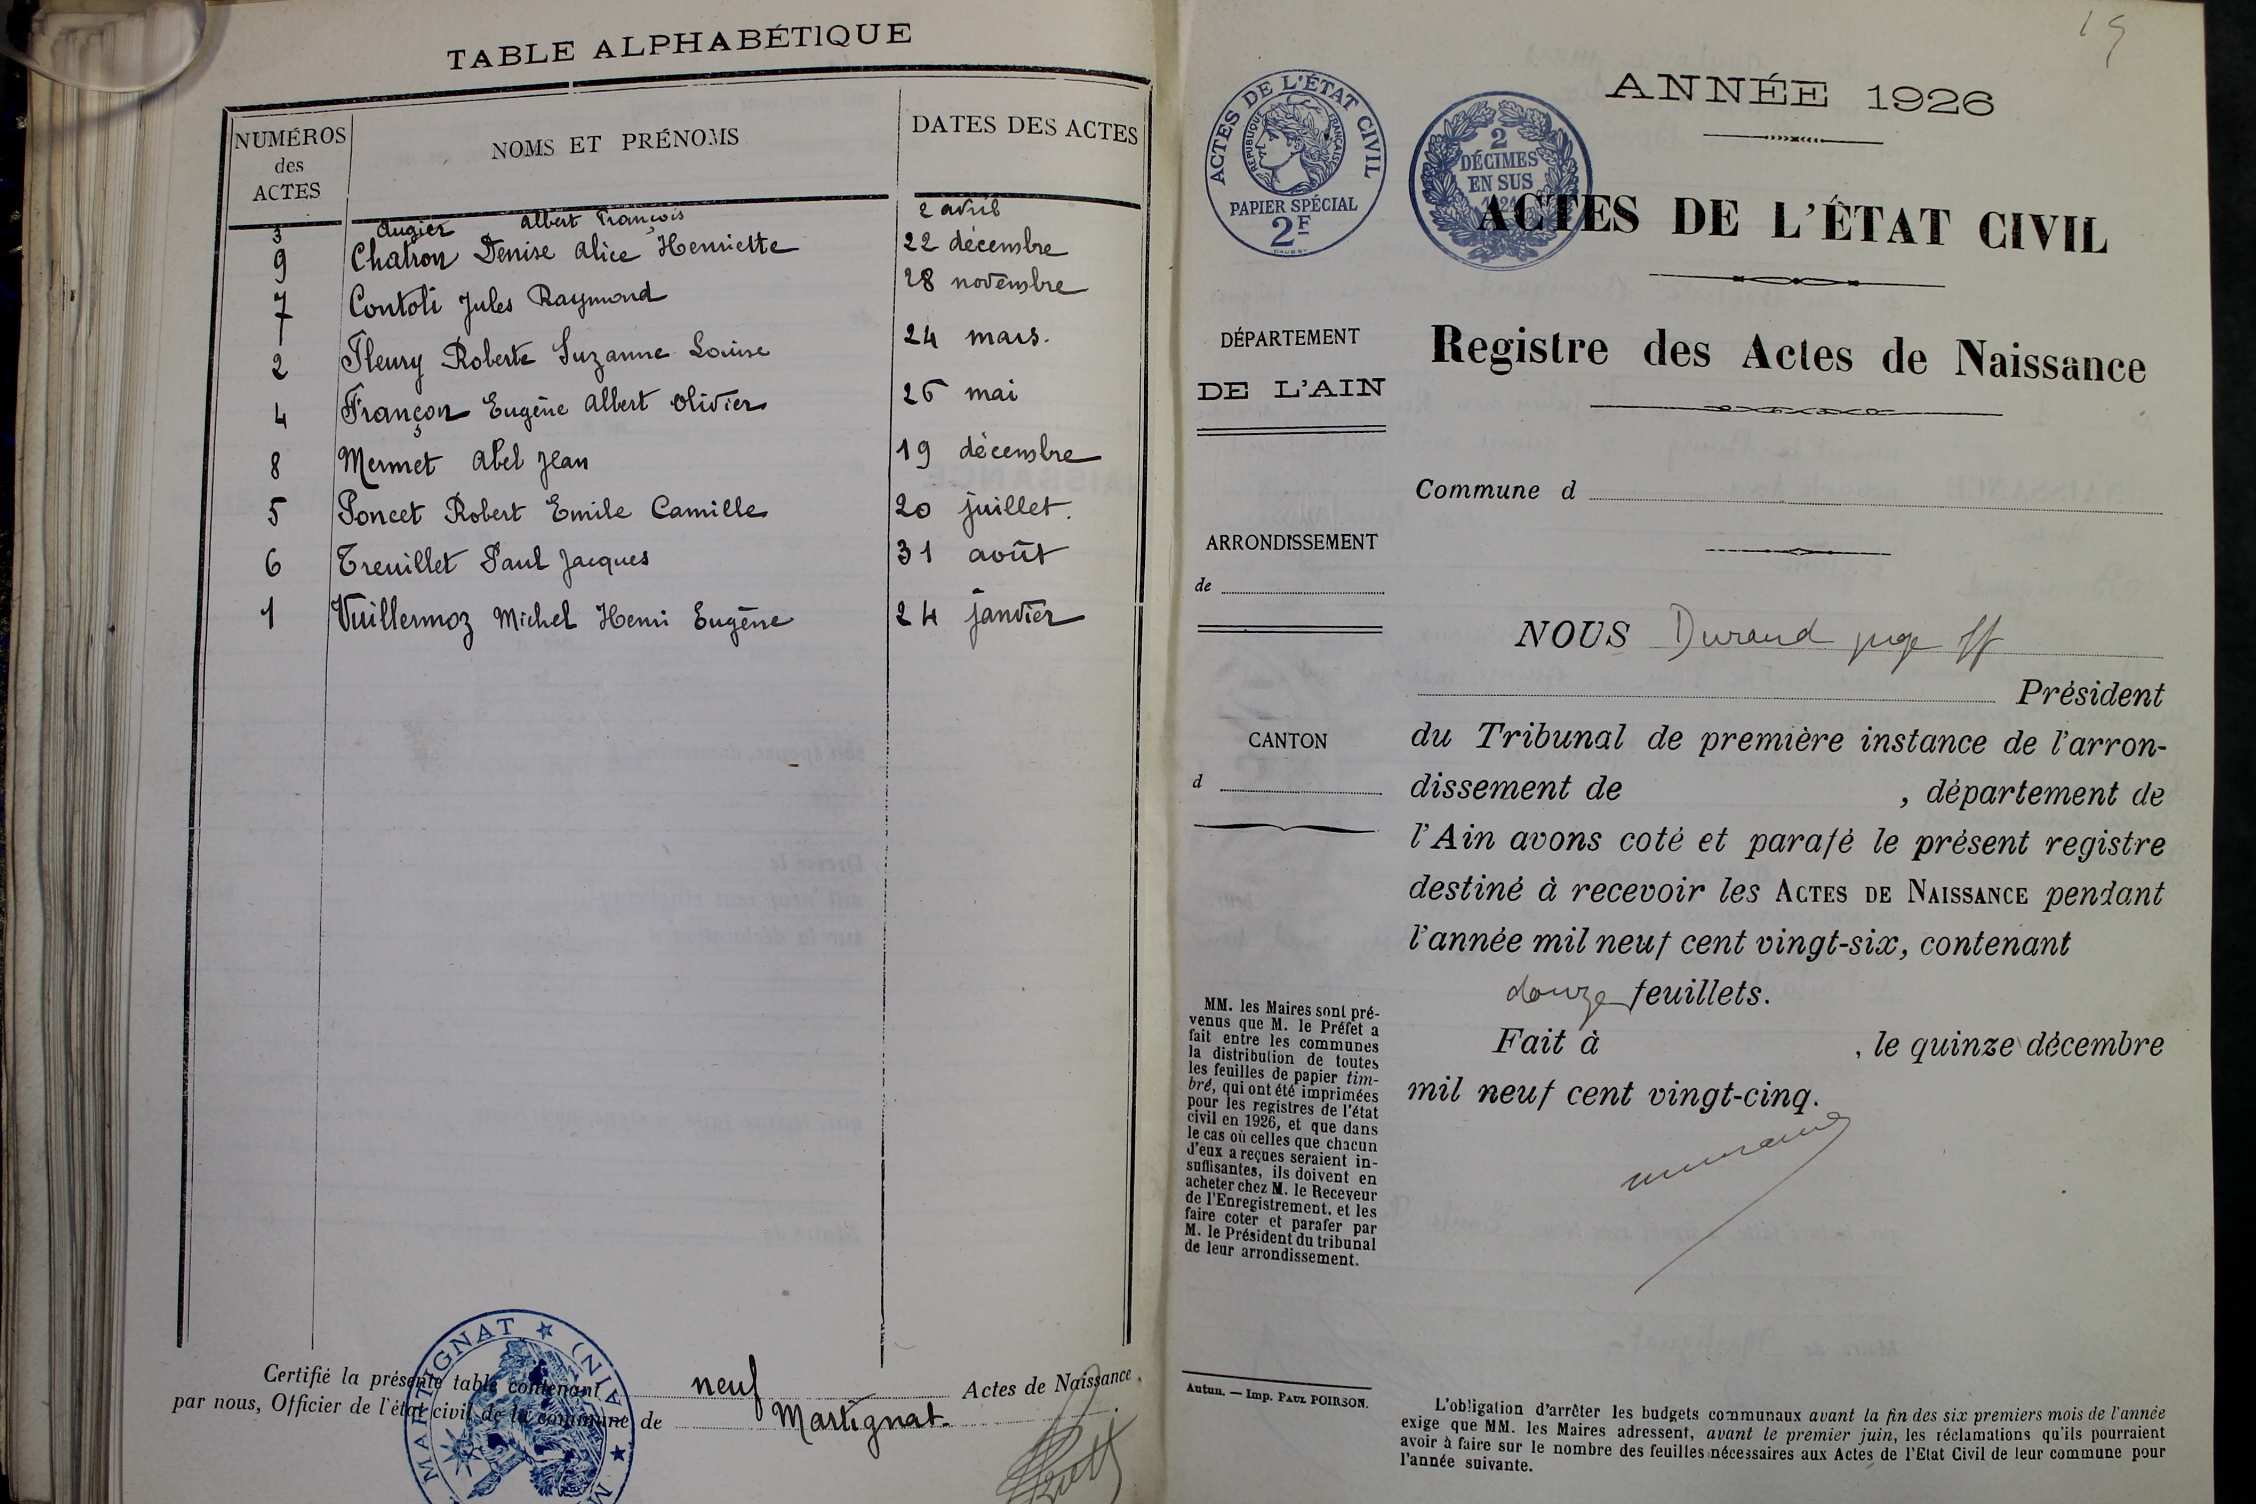 TABLE ALPHABÉTIQUE
NUMÉROS des ACTES NOMS ET PRÉNOMS DATES DES ACTES
3 Augier Albert François 2 avril
9 Chatron Denise Alice Henriette 22 décembre
7 Contoli Jules Raymond 28 novembre
2 Fleury Roberte Suzanne Louise 24 mars.
4 Françon Eugène Albert Olivier 26 mai
8 Mermet Abel Jean 19 décembre
5 Poncet Robert Emile Camille 20 juillet.
6 Treuillet Paul Jacques 31 août
1 Vuillermoz Michel Henri Eugène 24 janvier
Certifié la présente table contenant neuf Actes de Naissance,
par nous, Officier de l'état civil de la commune de Martignat.
MARTIGNAT ★ (AIN) ★
15
ACTES DE L'ÉTAT CIVIL
RÉPUBLIQUE FRANÇAISE
PAPIER SPÉCIAL
2F
2
DÉCIMES
EN SUS
ANNÉE 1926
ACTES DE L'ÉTAT CIVIL
Registre des Actes de Naissance
DÉPARTEMENT
DE L'AIN
Commune d
ARRONDISSEMENT
de
CANTON
d
NOUS Durand juge ff
Président
du Tribunal de première instance de l'arron-
dissement de , département de
l'Ain avons coté et parafé le présent registre
destiné à recevoir les ACTES DE NAISSANCE pendant
l'année mil neuf cent vingt-six, contenant
douze feuillets.
Fait à , le quinze décembre
mil neuf cent vingt-cinq.
MM. les Maires sont pré-
venus que M. le Préfet a
fait entre les communes
la distribution de toutes
les feuilles de papier tim-
bré, qui ont été imprimées
pour les registres de l'état
civil en 1926, et que dans
le cas où celles que chacun
d'eux a reçues seraient in-
suffisantes, ils doivent en
acheter chez M. le Receveur
de l'Enregistrement, et les
faire coter et parafer par
M. le Président du tribunal
de leur arrondissement.
Autun. — Imp. PAUL POIRSON.
L'obligation d'arrêter les budgets communaux avant la fin des six premiers mois de l'année
exige que MM. les Maires adressent, avant le premier juin, les réclamations qu'ils pourraient
avoir à faire sur le nombre des feuilles nécessaires aux Actes de l'Etat Civil de leur commune pour
l'année suivante.